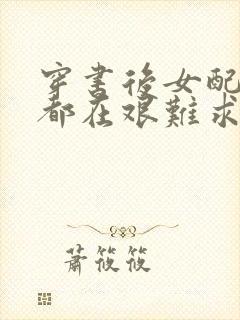 穿書後女配
都在艱難求
蕭筱筱